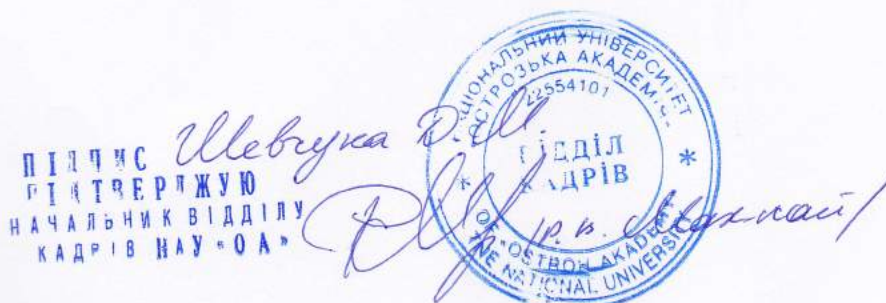 ПІДПИС Шевчука Д.М
ПІДТВЕРДЖУЮ
НАЧАЛЬНИК ВІДДІЛУ
КАДРІВ НАУ «ОА»
НАЦІОНАЛЬНИЙ УНІВЕРСИТЕТ
«ОСТРОЗЬКА АКАДЕМІЯ»
22554101
ВІДДІЛ
КАДРІВ
* *
OF "OSTROH ACADEMY"
THE NATIONAL UNIVERSITY